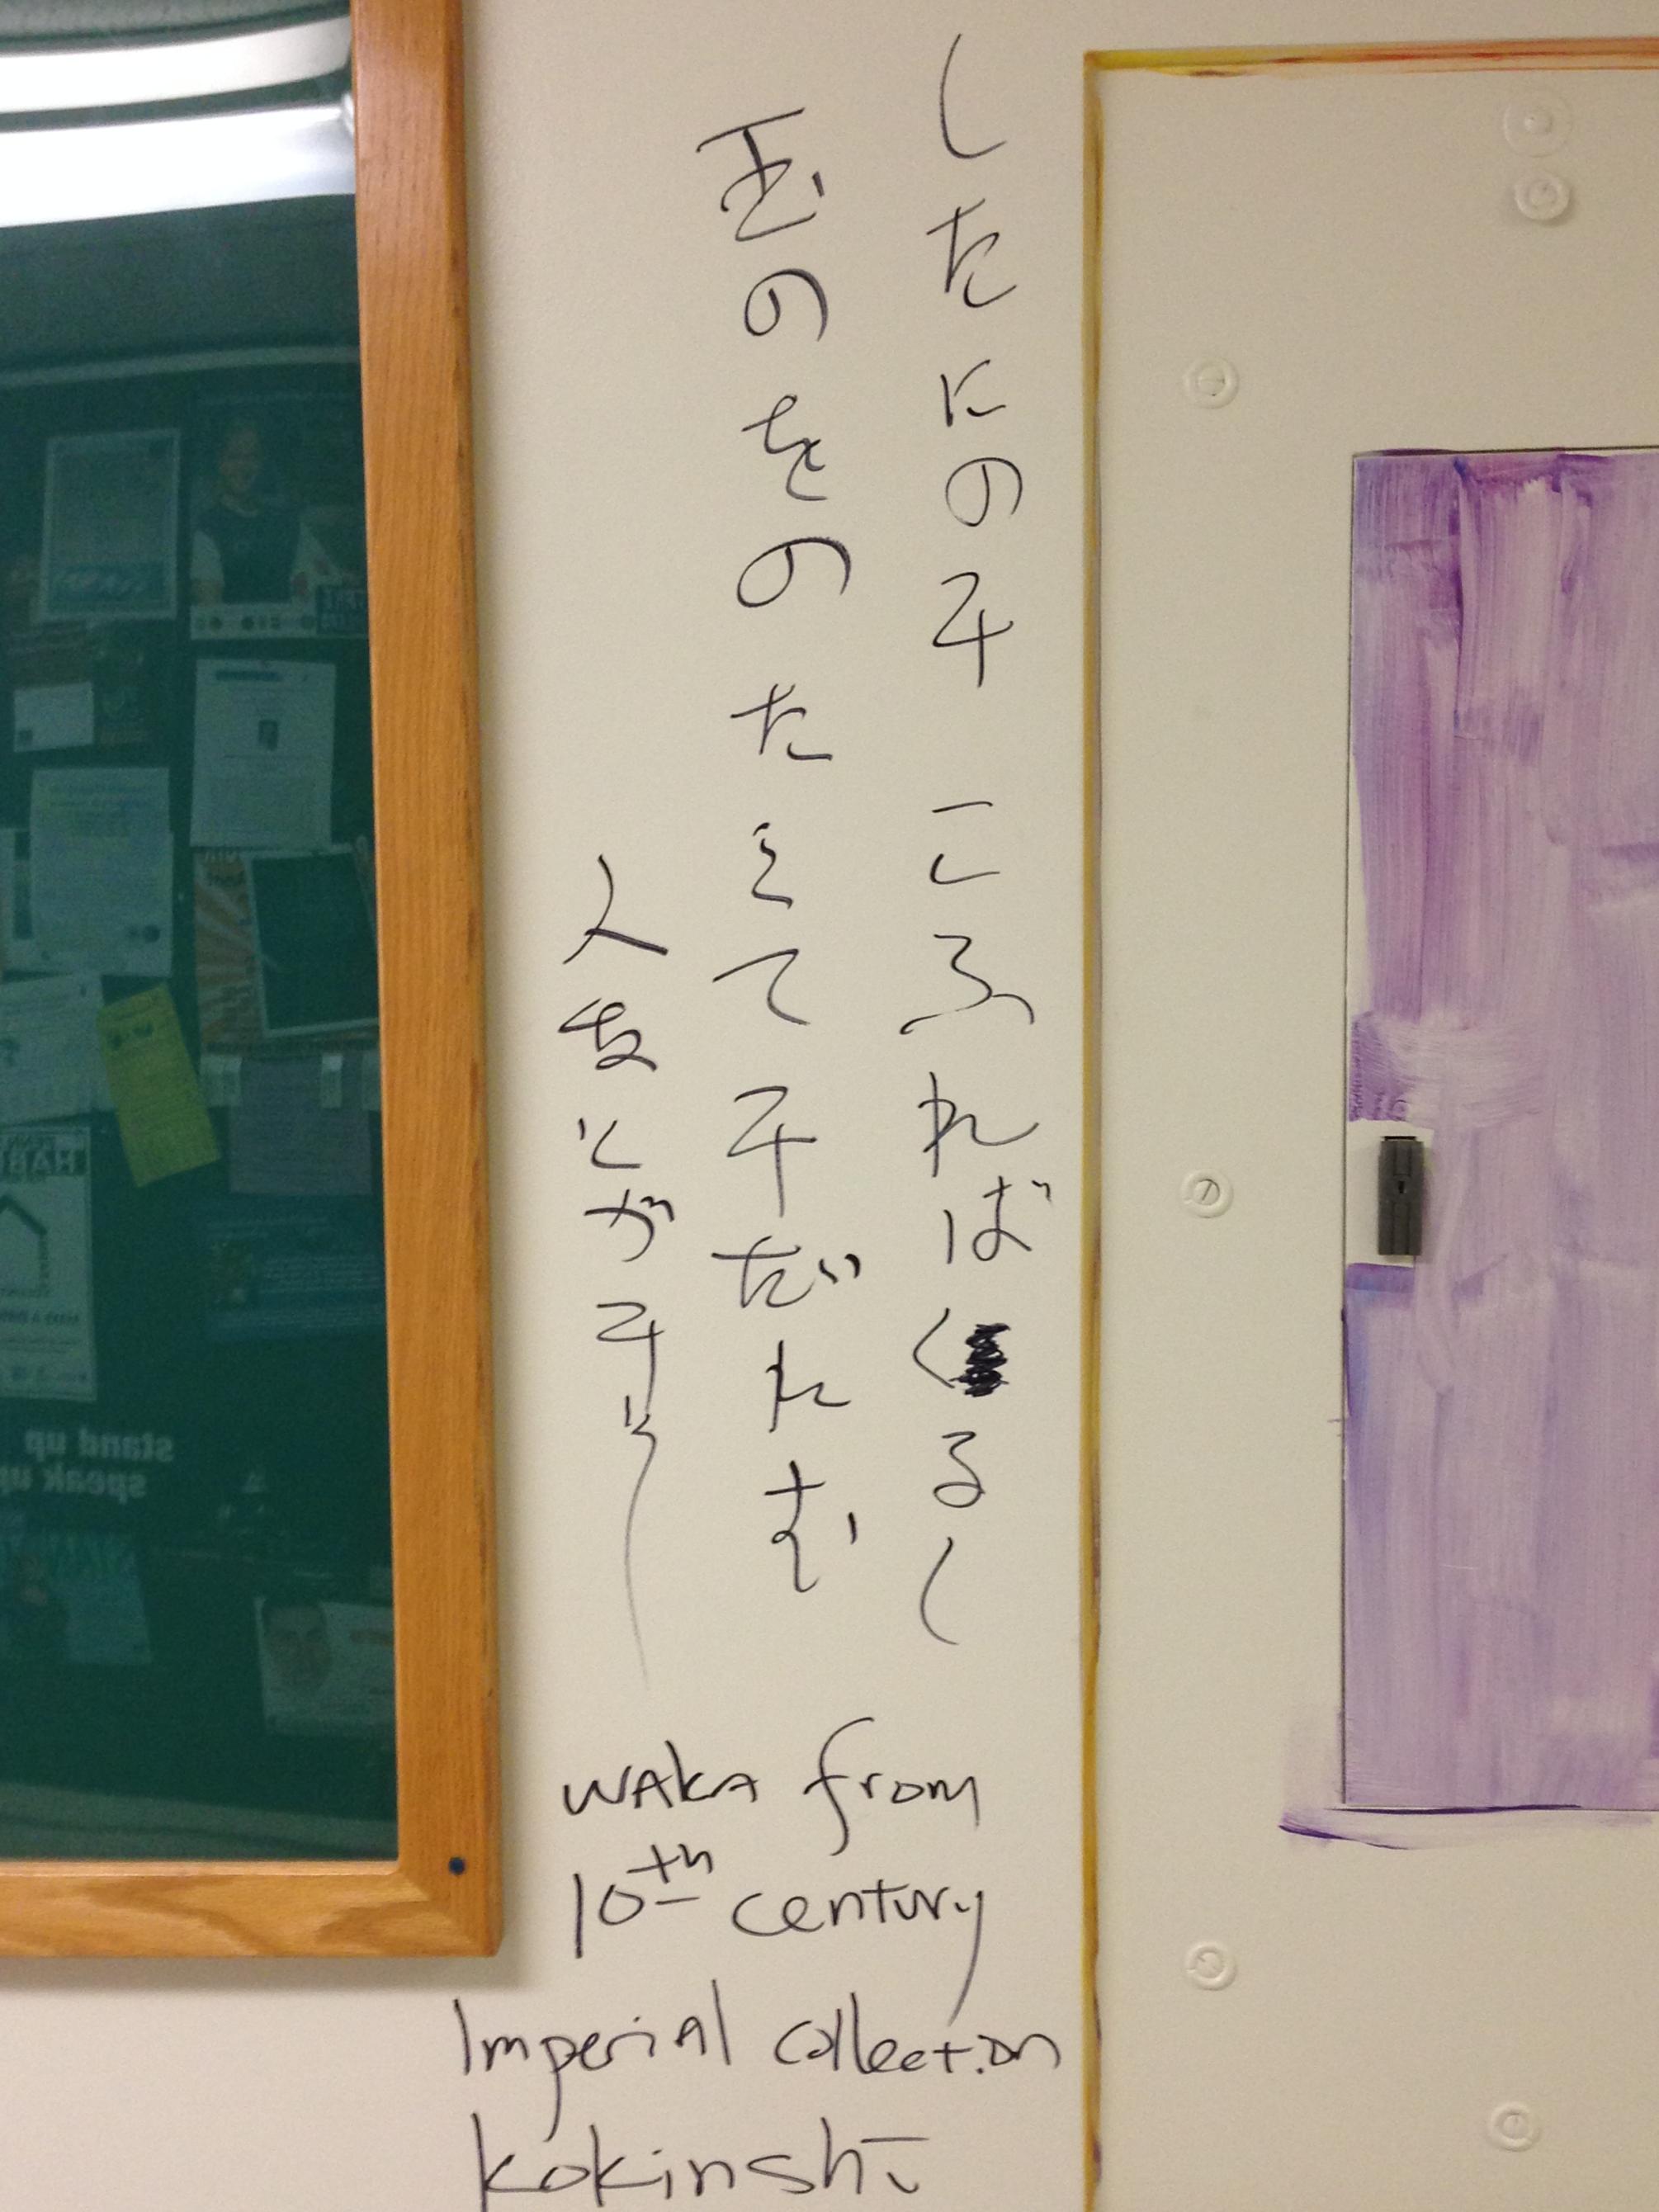 したにのみ こふればくるし
玉のをのたえてみだれむ
人なとがみそ
waka from
10th century
Imperial collection
kokinshū
stand up
speak up